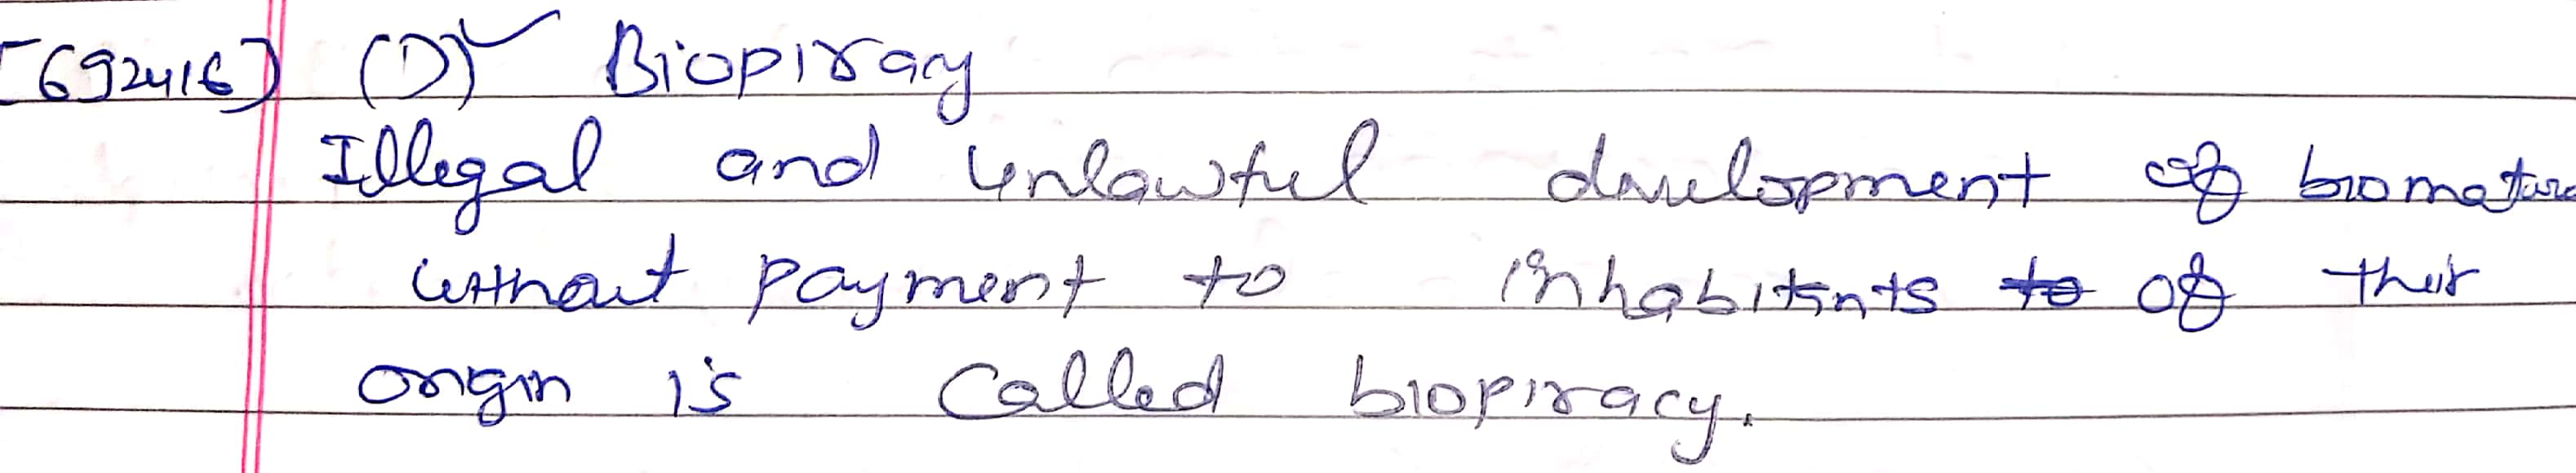 [692416] (D) Biopiracy
Illegal and unlawful development of
without payment to inhabitants to of their
origin is called biopiracy.